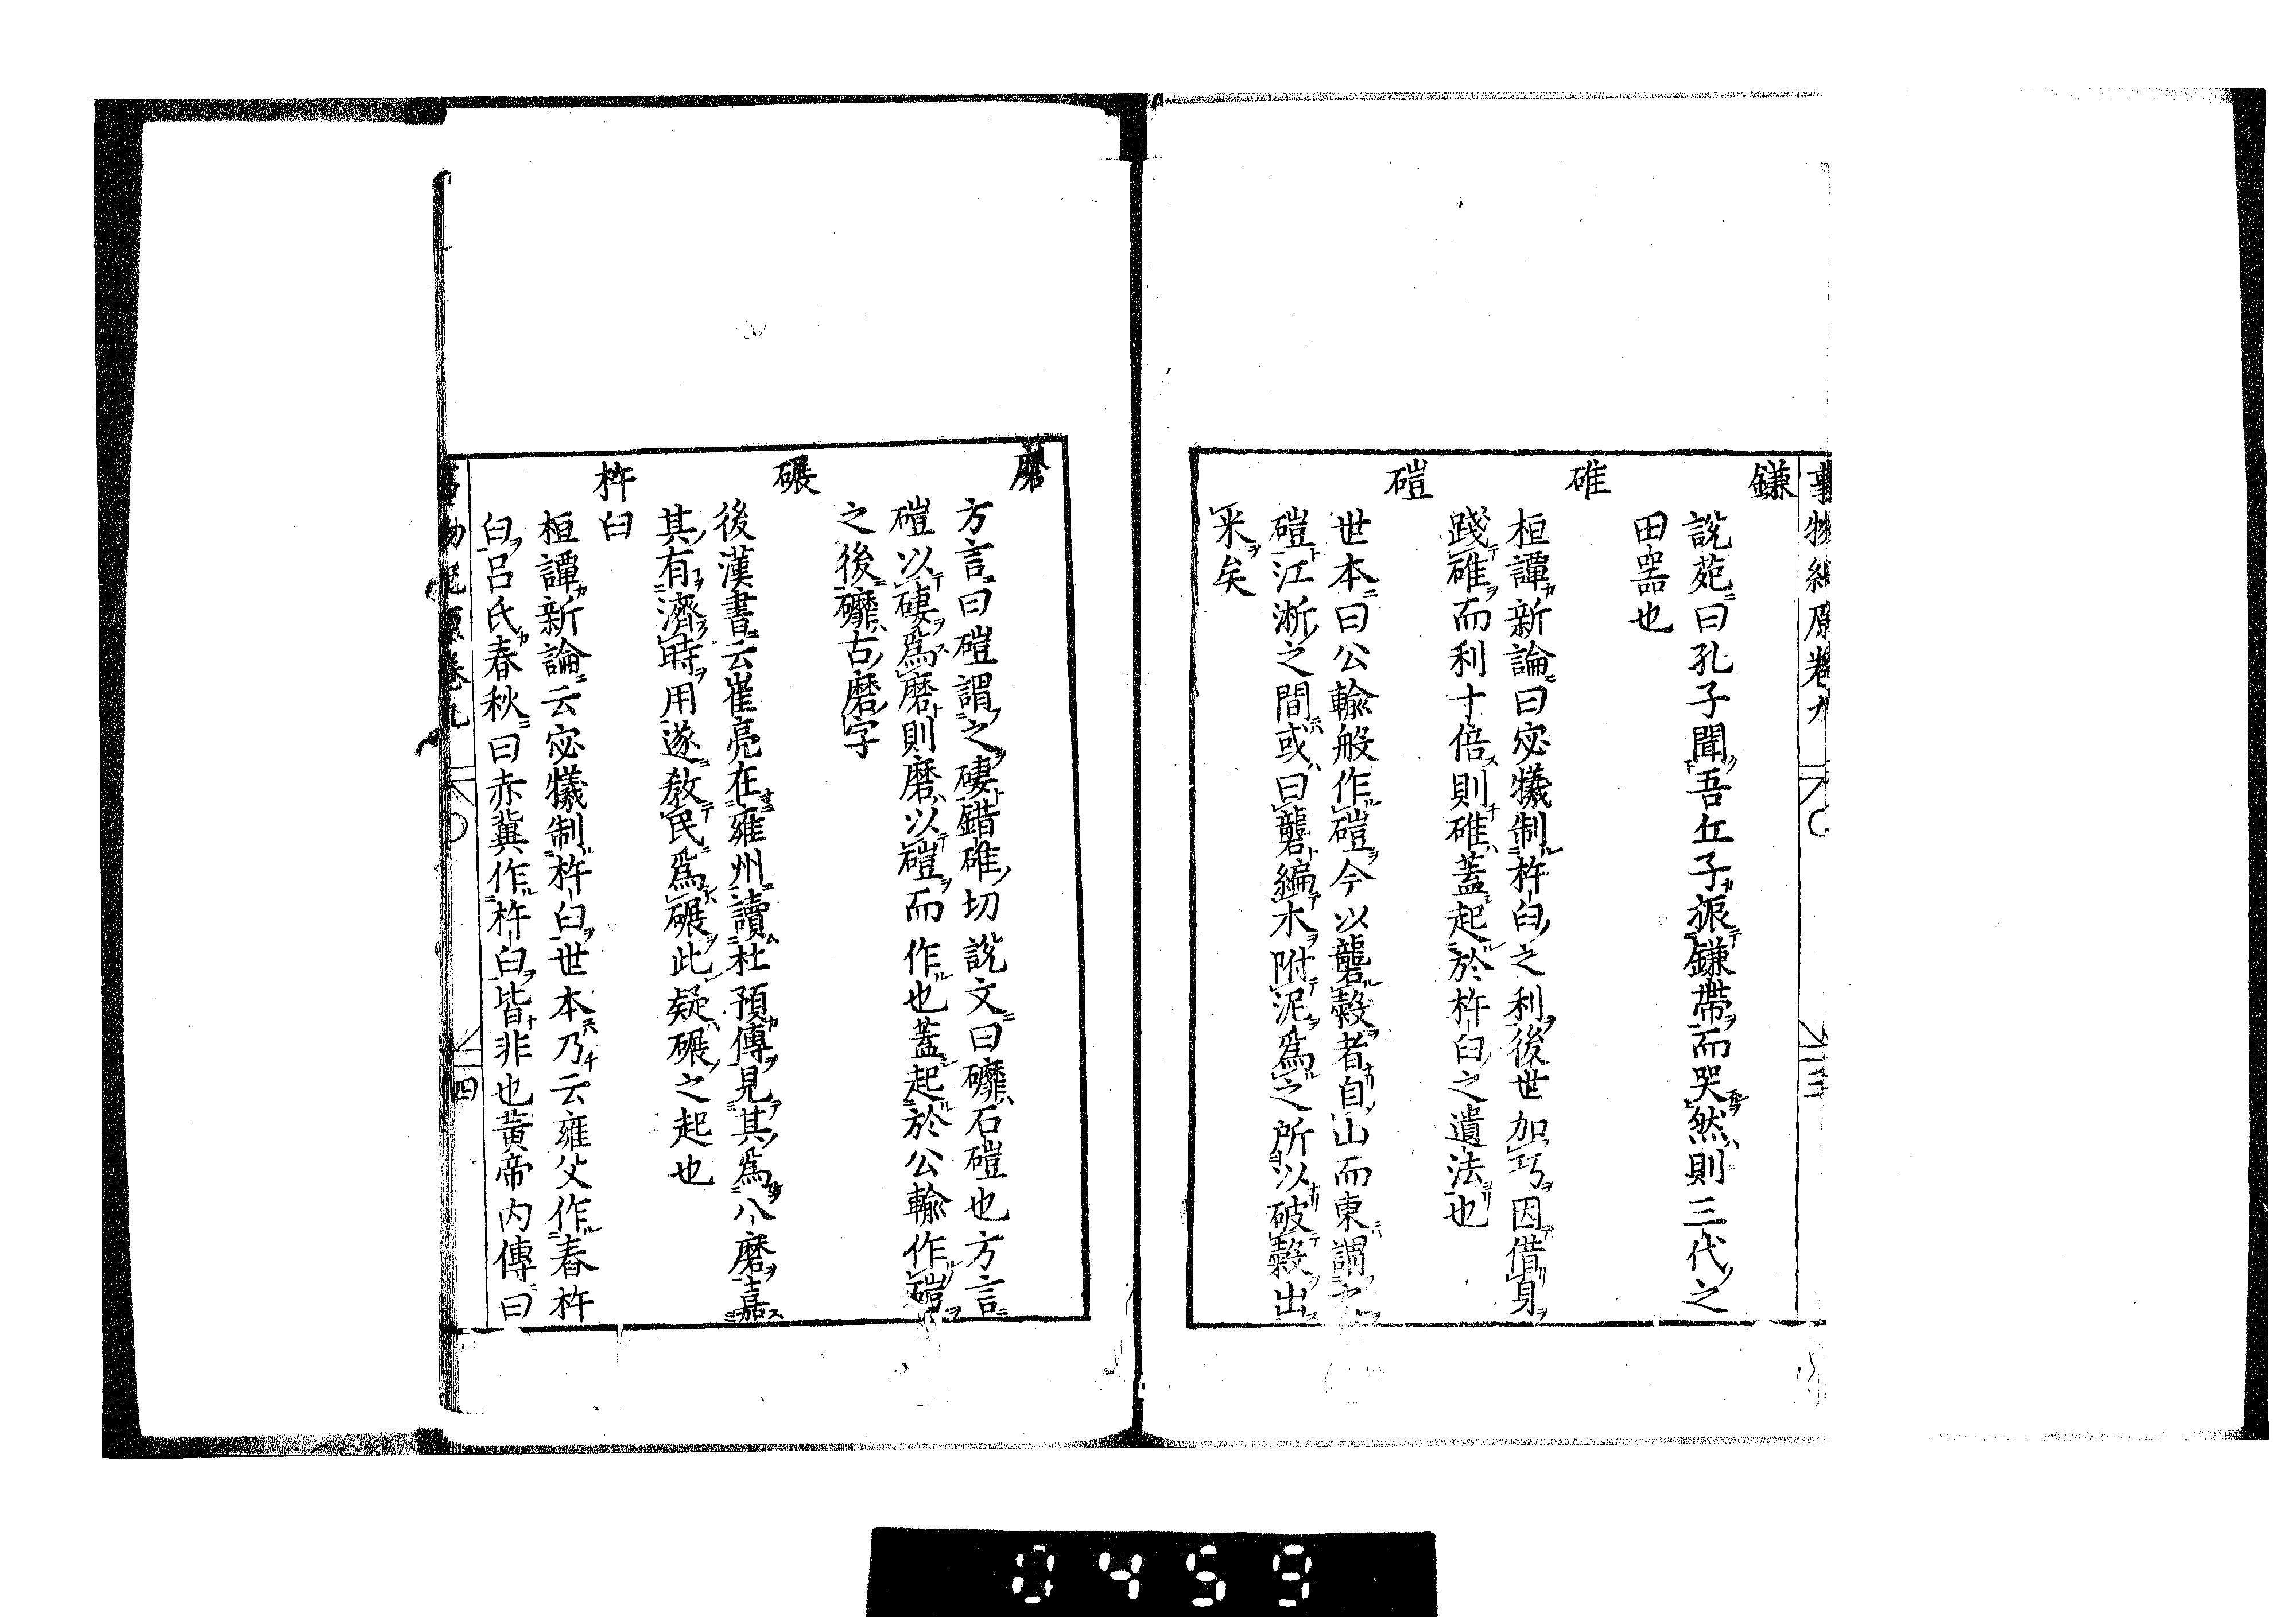 事物紀原卷九
三
鎌
說苑曰孔子聞吾丘子振鎌帶而哭然則三代之
田噐也
碓
桓譚新論曰宓犧制杵臼之利後世加巧因借身
踐碓而利十倍則碓蓋起於杵臼之遺法也
磑
世本曰公輸般作磑今以礱穀者自山而東謂之
磑江淅之間或曰礱編木附泥爲之所以破穀出
米矣
磨
方言曰磑謂之䃀錯碓切說文曰䃺石磑也方言
磑以䃀爲磨則磨以磑而作也蓋起於公輸作磑
之後䃺古磨字
碾
後漢書云崔亮在雍州讀杜預傳見其爲八磨嘉
其有濟時用遂敎民爲碾此疑碾之起也
杵臼
桓譚新論云宓犧制杵臼世本乃云雍父作舂杵
臼呂氏春秋曰赤冀作杵臼皆非也黃帝內傳曰
事物紀原卷九
四
0459